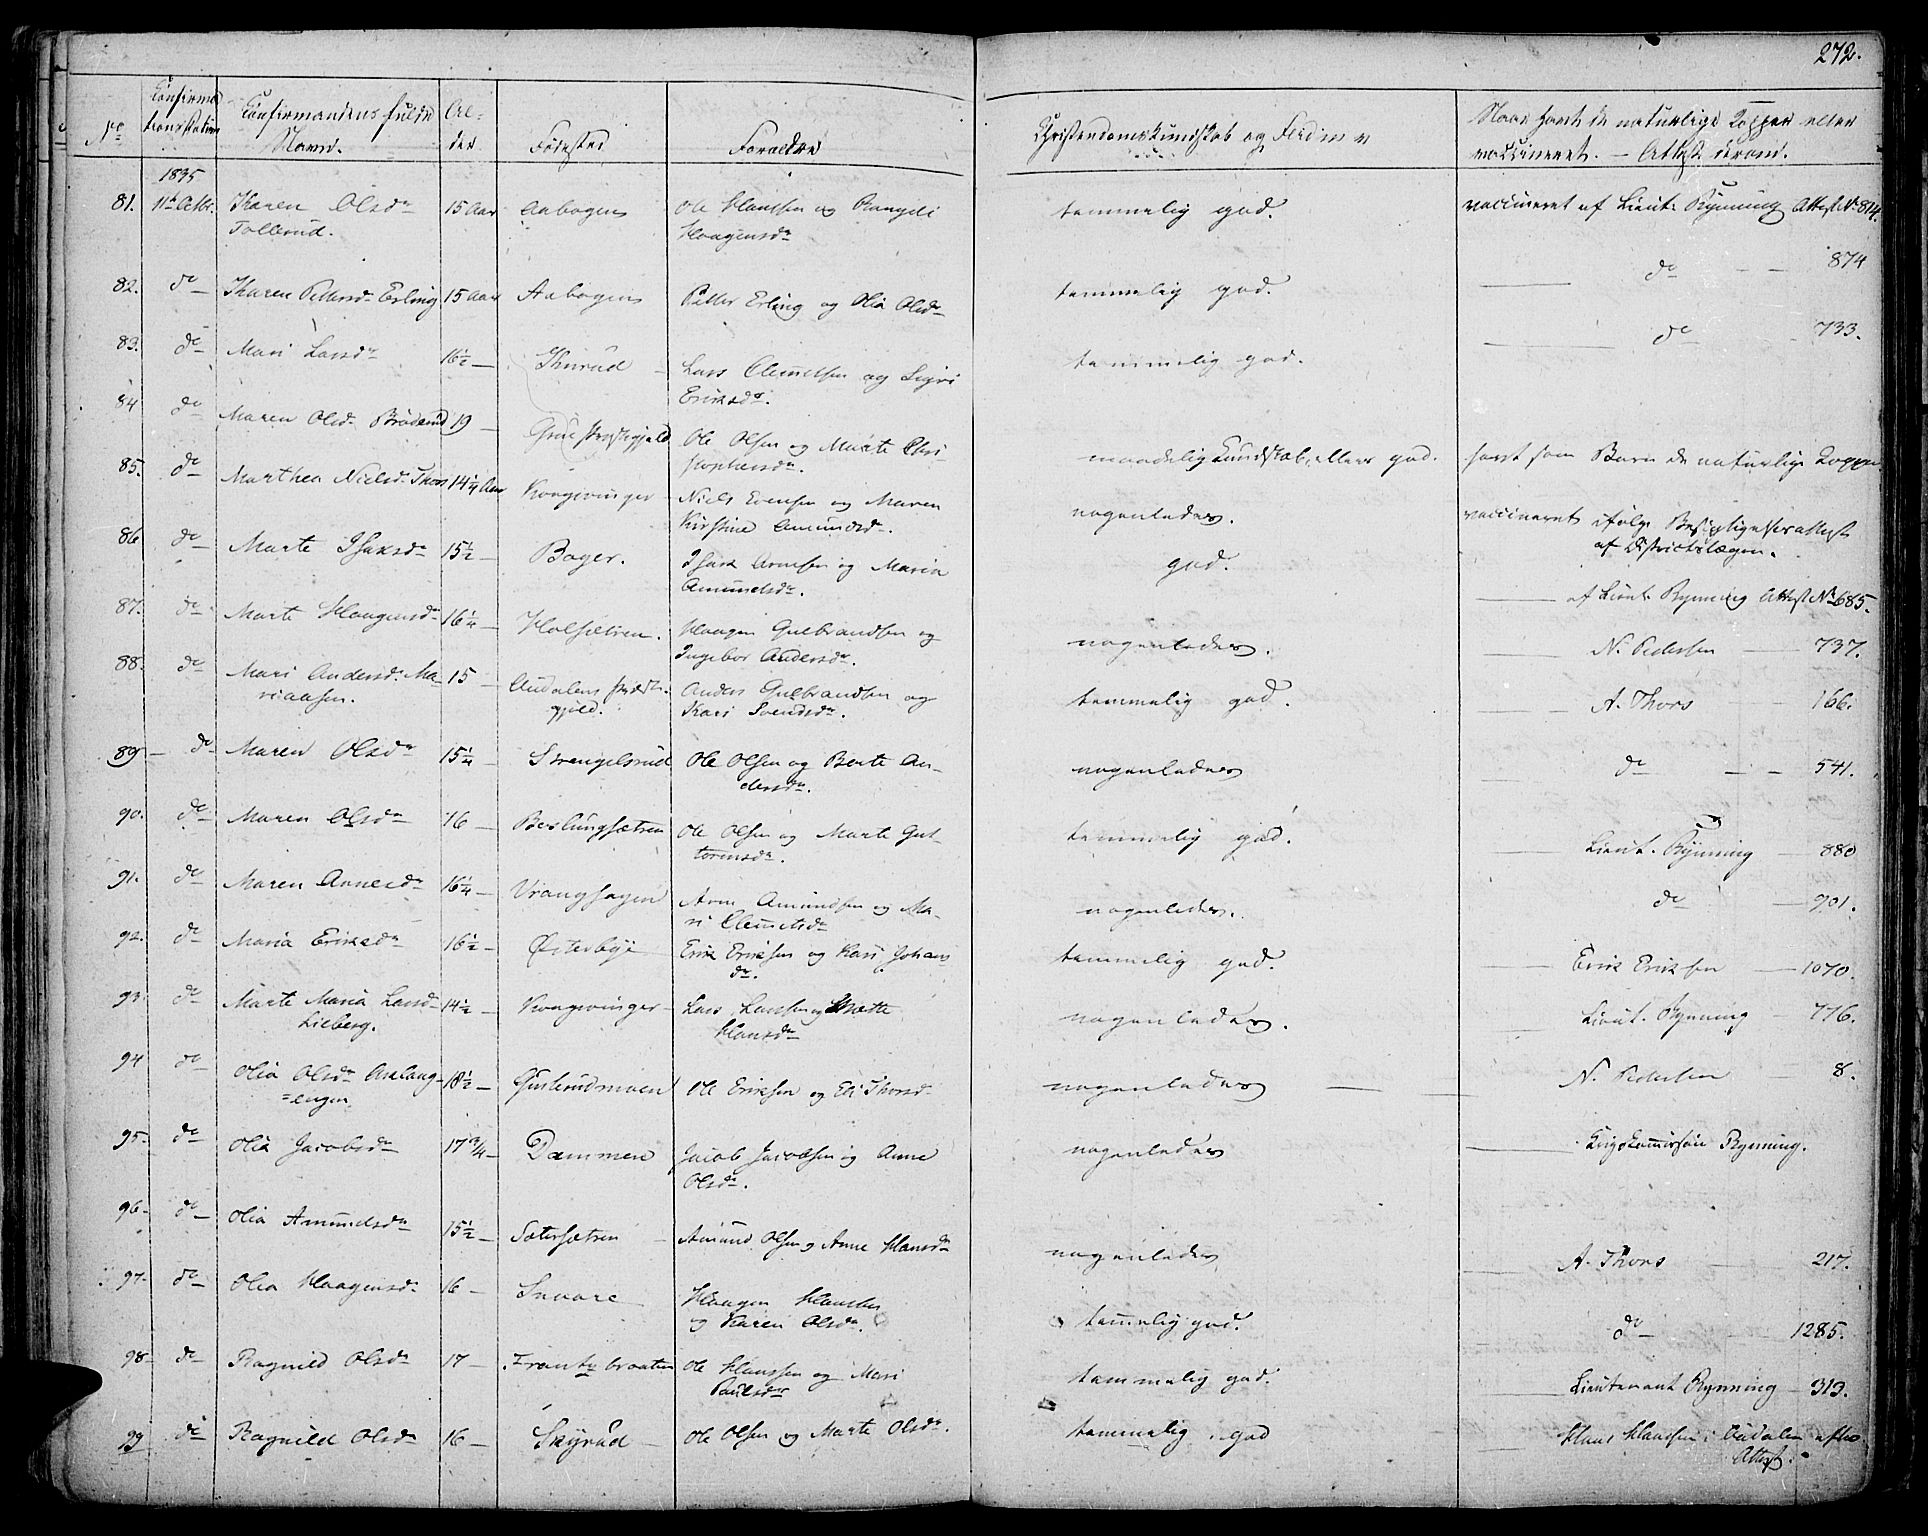 272.
No Confirmationsdatum Confirmandens fulde Navn. Alder Fødested Forældre Christendomskundskab og Flid m v Naar havt de naturlige Kopper eller vaccineret. — Attest derom.
1835
81. 11te Octbr. Karen Olsdr Tollerud. 15 Aar Aabogen Ole Hanssen og Rangdi Haagensdr temmelig god. vaccineret af Lieut. Rynning Attest No 814.
82. do — Karen Pettersdr Erling 15 Aar Aabogen Petter Erling og Olia Olsdr temmelig god. — do — — 874
83. do Mari Larsdr 16½ — Thurud — Lars Clemetsen og Sigri Eriksdr. temmelig god. — do — 733.
84 do Maren Olsdr Brøderud 19 — Grue Præstegjeld Ole Olsen og Marte Christophersdr. maadelig Kundskab, ellers god. havt som Barn de naturlige Kopper
85. do Marthea Nielsdr Thors 14¼ Aar Kongsvinger — Niels Evensen og Maren Kirstine Amundsdr. nogenledes. vaccineret ifølge Besigtigelsesattest af Districtslægen.
86 do Marte Isaksdr 15½ — Boger. Isack Arnesen og Maria Amundsdr. god. — af Lieut. Rynning Attest No 685.
87. do Marte Haagensdr 16¼ — Holsætren. Haagen Gulbrandsen og Ingebor Andersdr. nogenledes. — N. Pedersen — 737.
88. do Mari Andersdr Mariaasen. 15 — Audalens Præstegjeld. Anders Gulbrandsen og Kari Svendsdr. temmelig god. — A. Thors — 166.
89 — do Maren Olsdr 15¼ — Strengelsrud Ole Olsen og Berte Andersdr. nogenledes — do — — 541.
90. do Maren Olsdr 16 — Beslungsætren Ole Olsen og Marte Guttormsdr. temmelig god. — Lieut. Rynning — 880
91. do — Maren Arnesdr 16¼ — Vranghagen Arne Amundsen og Mari Clemetsdr nogenledes. — do — 901.
92. do Maria Eriksdr 16½ — Østerbye Erik Eriksen og Kari Johansdr. temmelig god. — Erik Eriksen — 1070.
93. do Marte Maria Larsdr Lieberg. 14½ — Kongsvinger — Lars Larsen og Mette Hansdr nogenledes. — Lieut. Rynning — 776.
94 do Olia Olsdr Aaslangengen 18½ — Gusterudmoen Ole Eriksen og Eli Thorsdr nogenledes — N. Pedersen — 8.
95. do Olia Jacobsdr 17¾ — Dammen Jacob Jacobsen og Anne Olsdr. nogenledes — Krigskommissair Rynning.
96. do — Olia Amundsdr 15½ — Sætersætren — Amund Olsen og Anne Hansdr nogenledes — A. Thors — 217.
97. do — Olia Haagensdr 16 — Snaare Haagen Hanssen og Karen Olsdr. temmelig god. do — — 1285.
98 — do — Ragnild Olsdr 17 — Frantzbraaten Ole Hanssen og Mari Paulsdr temmelig god. — Lieutenant Rynning — 313.
99 do Ragnild Olsdr 16 — Skyrud — Ole Olsen og Marte Olsdr. temmelig god — Hans Hanssen i Oudalen Attest.